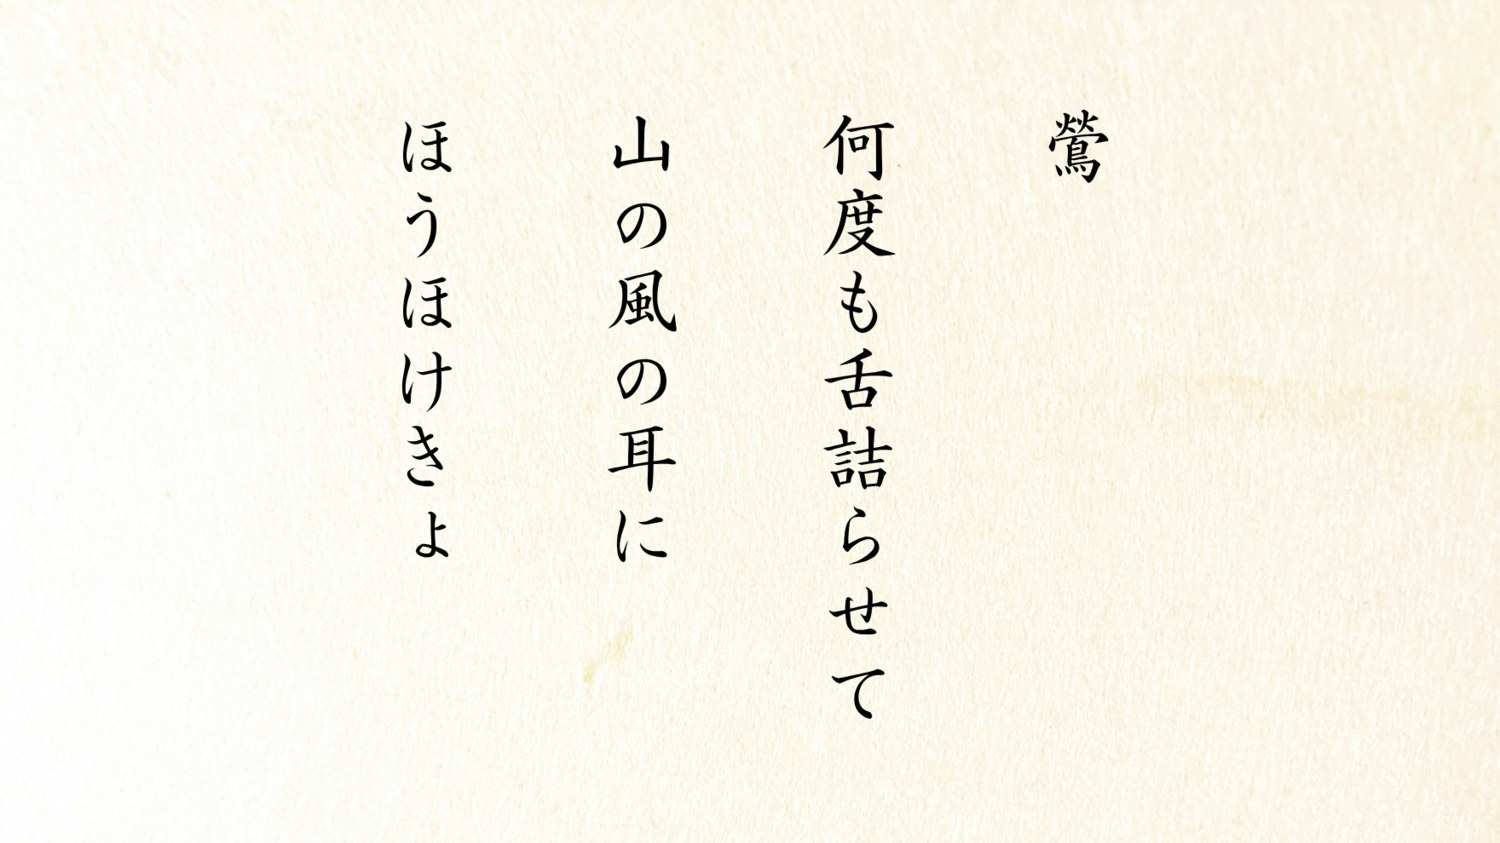 鶯
何度も舌詰らせて
山の風の耳に
ほうほけきょ